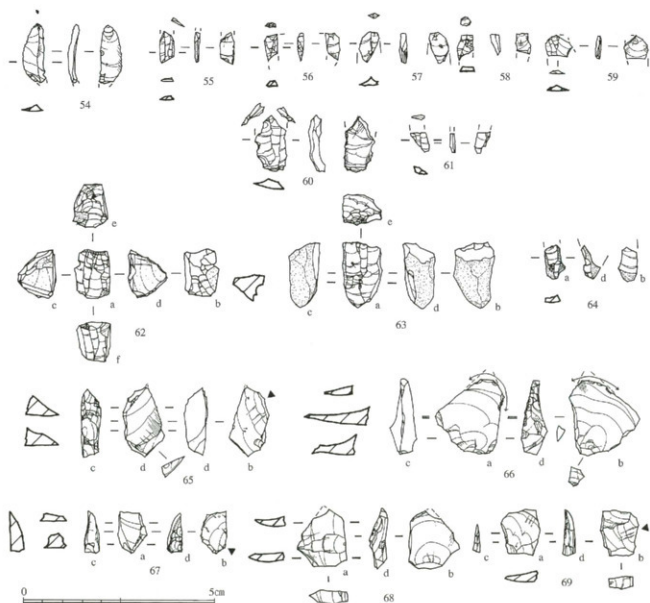 54
55
56
57
58
59
60
61
e
c a d b
f
62
e
c a d b
63
a d b
64
c d d b
65
c a d b
66
c a d b
67
a d b
68
c a d b
69
0 5cm